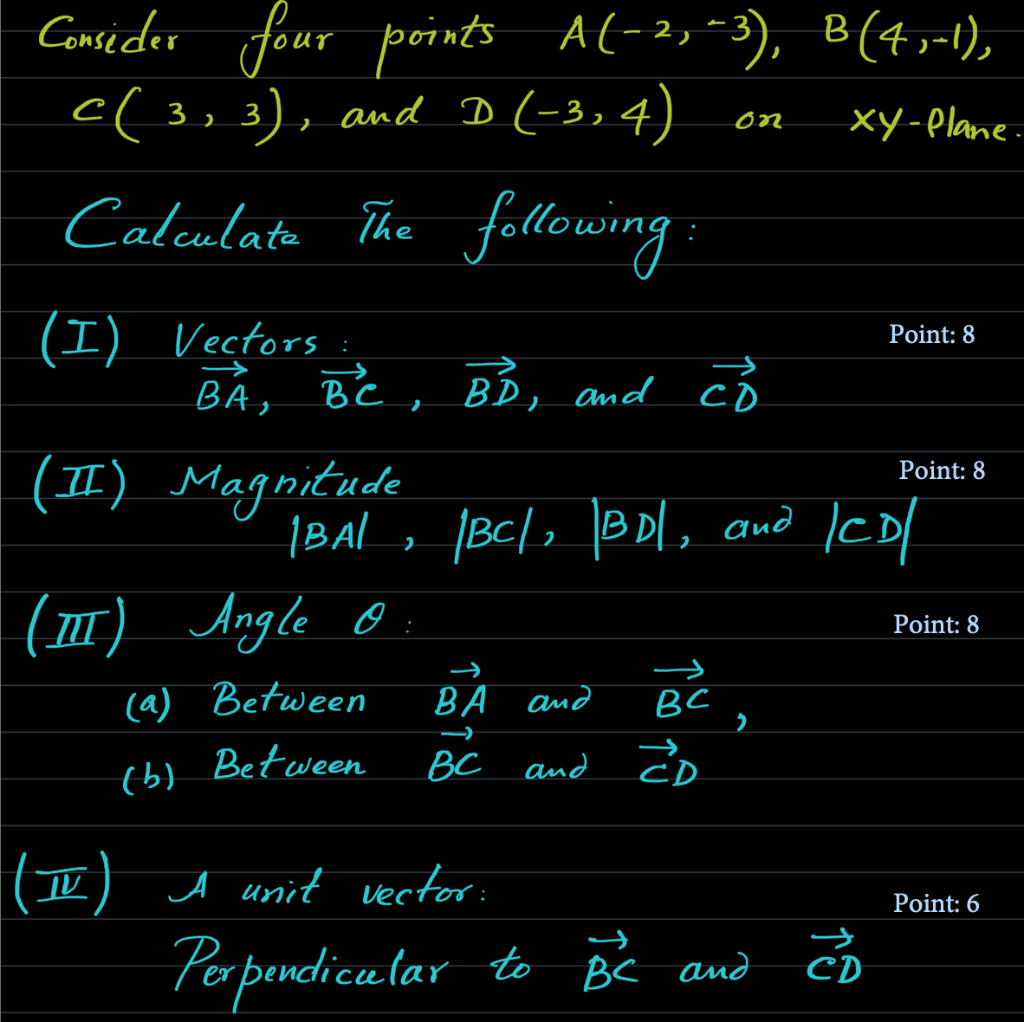 Consider four points A(-2, -3), B(4,-1),
C( 3, 3), and D (-3, 4) on xy-plane.
Calculate The following:
(I) Vectors: Point: 8
BA, BC, BD, and CD
(II) Magnitude Point: 8
|BA|, |BC|, |BD|, and |CD|
(III) Angle θ: Point: 8
(a) Between BA and BC,
(b) Between BC and CD
(IV) A unit vector: Point: 6
Perpendicular to BC and CD